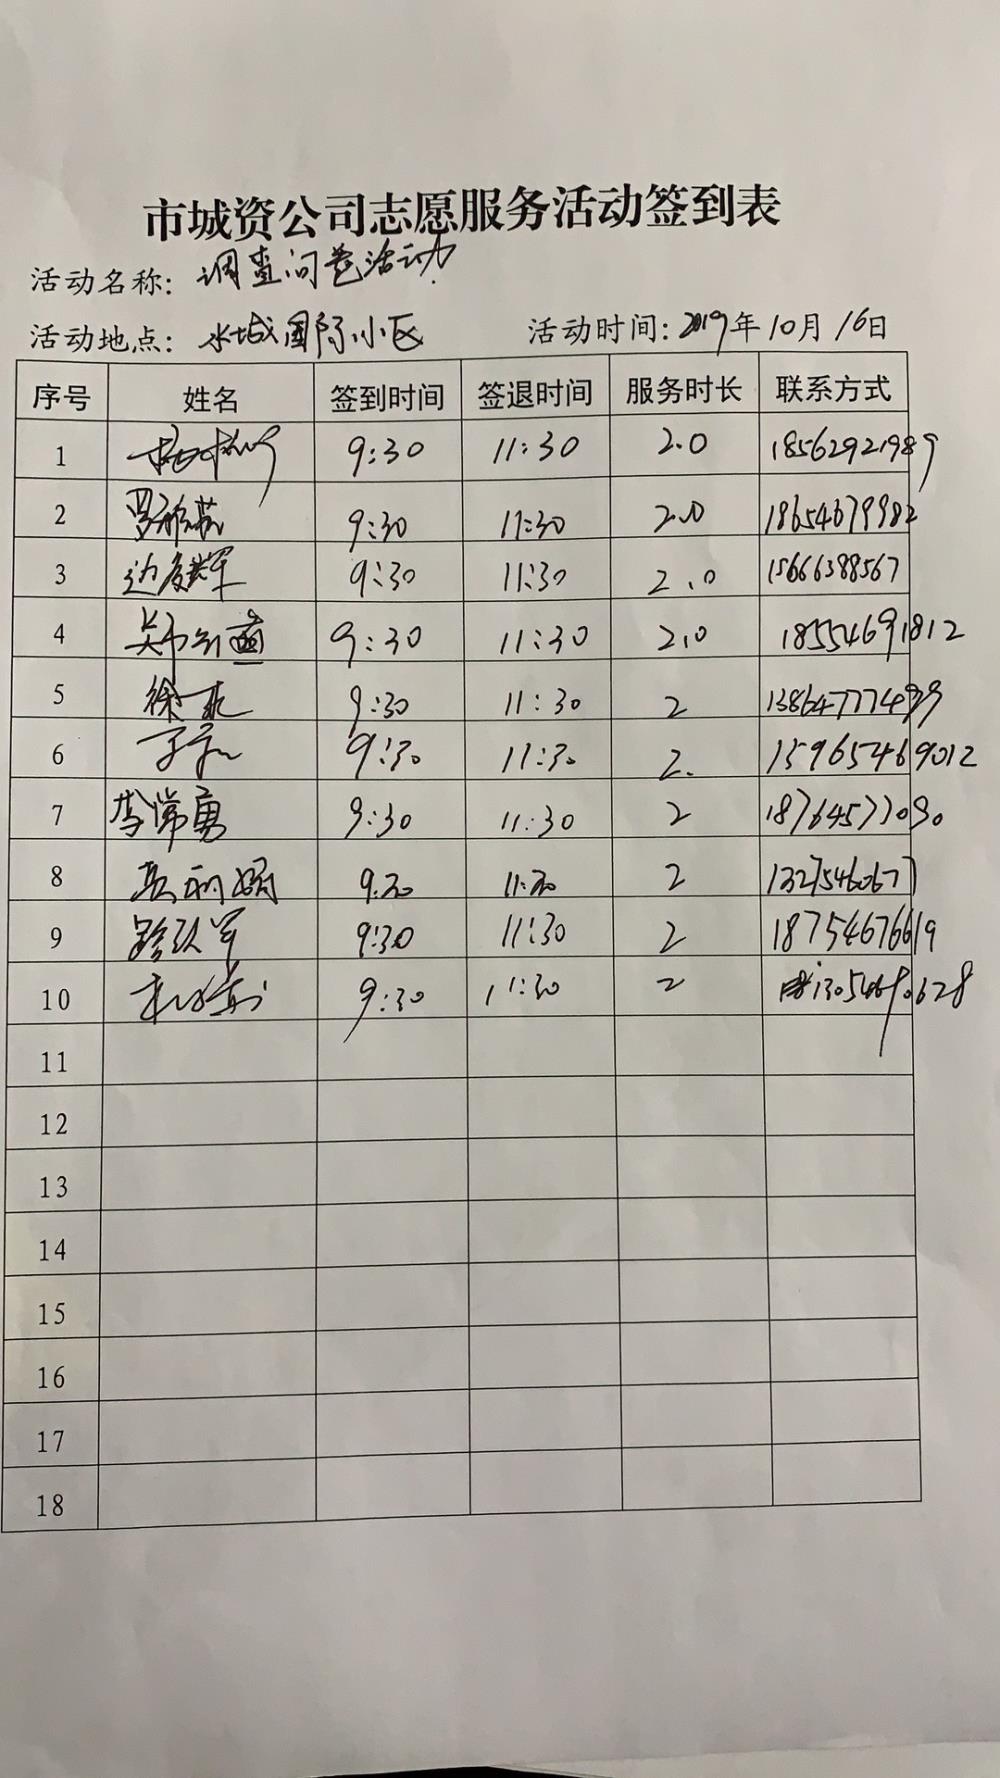 市城资公司志愿服务活动签到表
活动名称：调查问卷活动
活动地点：水城国际小区 活动时间：2019年10月16日
序号 姓名 签到时间 签退时间 服务时长 联系方式
1 9:30 11:30 2.0 18562921989
2 9:30 11:30 2.0 18654679982
3 边广辉 9:30 11:30 2.0 15666388567
4 9:30 11:30 2.0 18554691812
5 徐 9:30 11:30 2
6 9:30 11:30 2. 15965469012
7 李常勇 9:30 11:30 2 18764577090
8 9:30 11:30 2 13275460677
9 9:30 11:30 2 18754676619
10 9:30 11:30 2
11
12
13
14
15
16
17
18